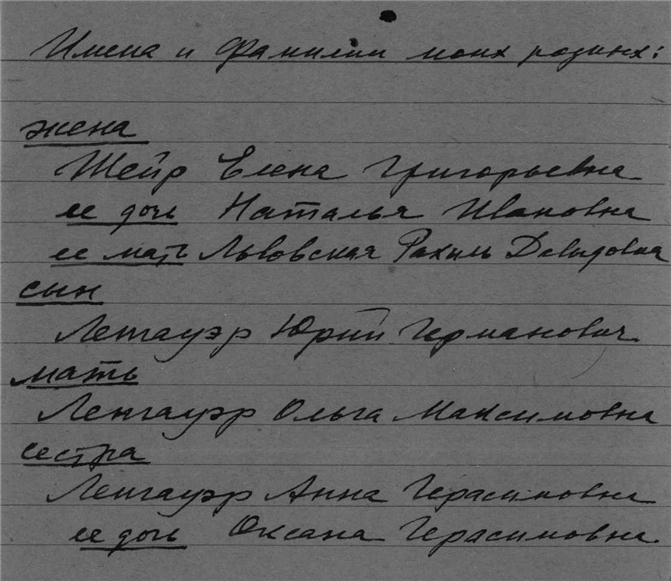 Имена и Фамилии моих родных:
жена
Шейр Елена Григорьевна
ее дочь Наталья Ивановна
ее мать Львовская Рахиль Давыдовна
сын
Ленгауэр Юрий Германович
мать
Ленгауэр Ольга Максимовна
сестра
Ленгауэр Анна Герасимовна
ее дочь Оксана Герасимовна.